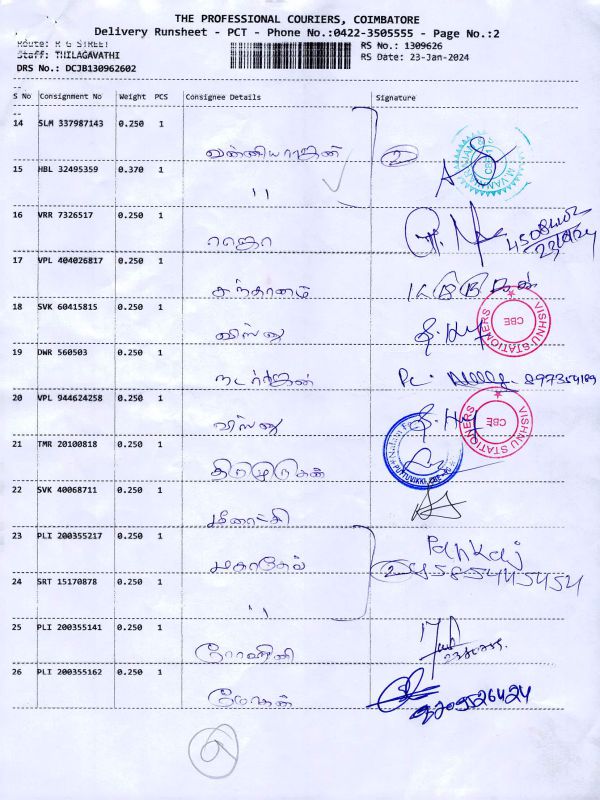 THE PROFESSIONAL COURIERS, COIMBATORE
Delivery Runsheet - PCT - Phone No.:0422-3505555 - Page No.:2
Route: R G STREET
RS No.: 1309626
Staff: THILAGAVATHI
RS Date: 23-Jan-2024
DRS No.: DCJB130962602
S No Consignment No Weight PCS Consignee Details Signature
14 SLM 337987143 0.250 1
வன்னியராஜன் 2
15 HBL 32495359 0.370 1
''
16 VRR 7326517 0.250 1
ராஜா
17 VPL 404026817 0.250 1
சந்தானம்
18 SVK 60415815 0.250 1
விஸ்ணு
VISHNU STATIONERS CBE
19 DWR 560503 0.250 1
நடராஜன்
20 VPL 944624258 0.250 1
விஸ்ணு
VISHNU STATIONERS CBE
21 TMR 20100818 0.250 1
திருமுருகன்
22 SVK 40068711 0.250 1
மீனாட்சி
23 PLI 200355217 0.250 1
மகாதேவ் Pankaj
2
24 SRT 15170878 0.250 1
''
25 PLI 200355141 0.250 1
ரோஷினி
26 PLI 200355162 0.250 1
மோகன்
9209526424